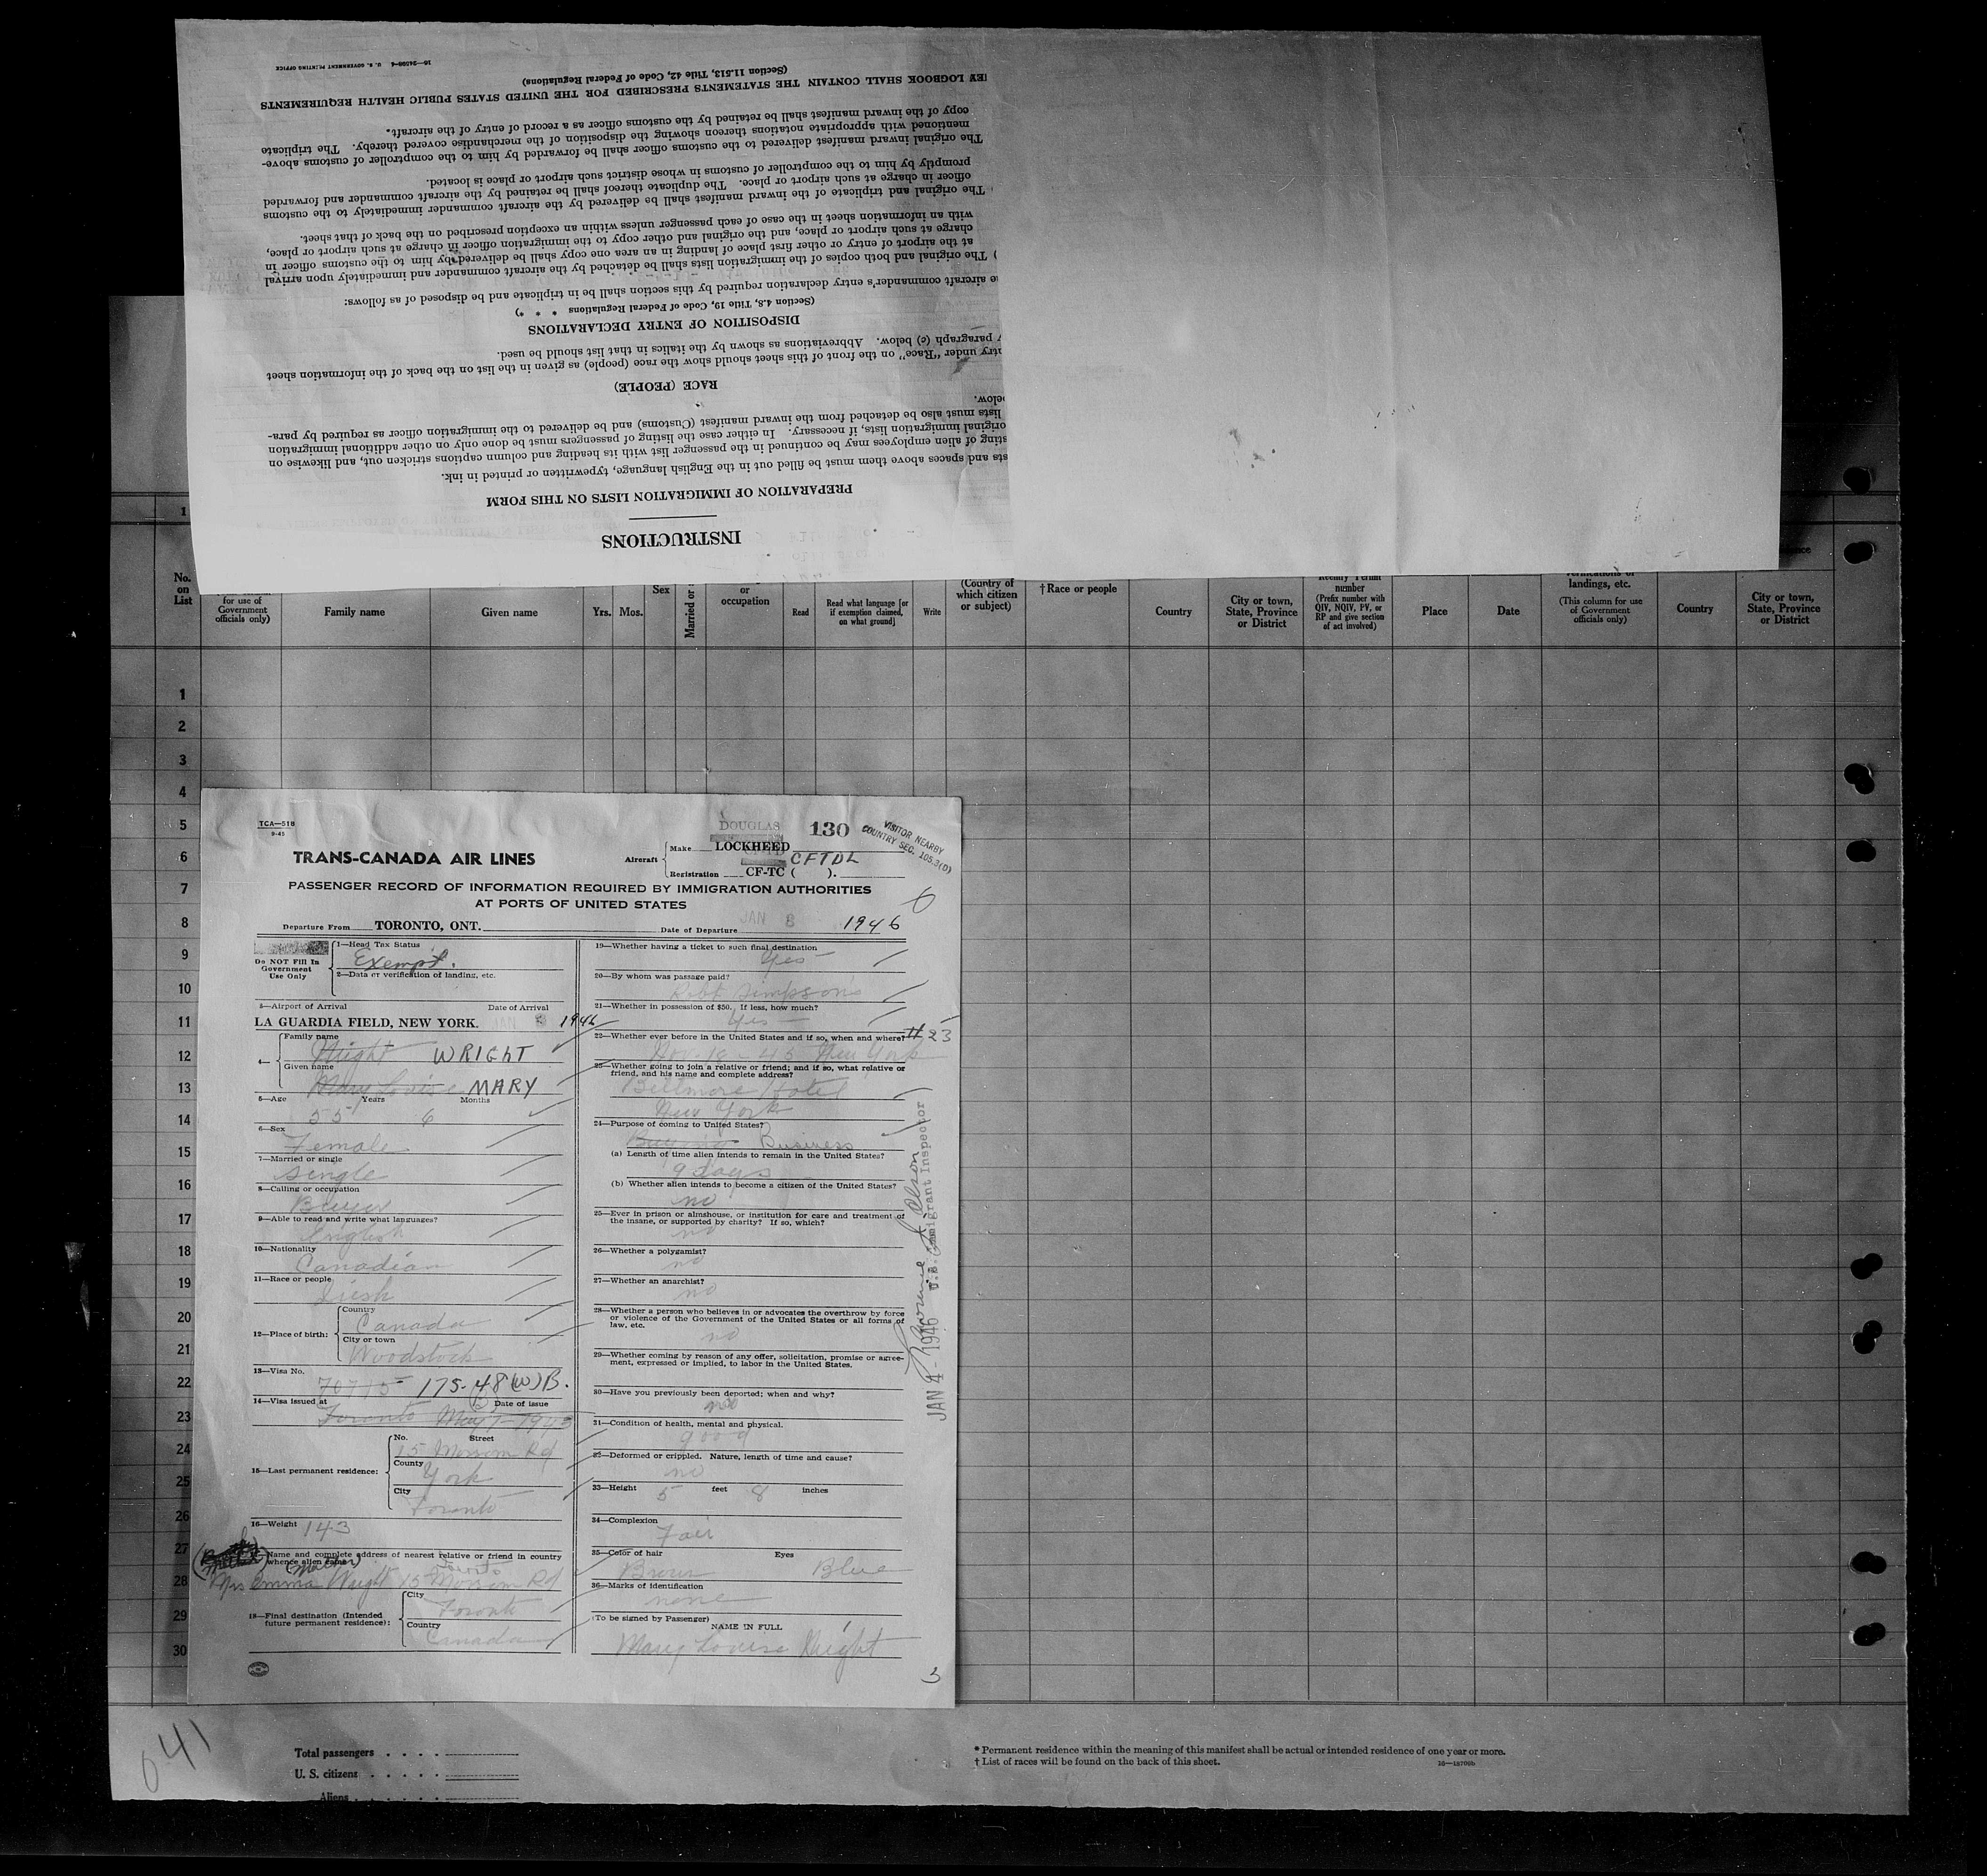 16—24598-4 U. S. GOVERNMENT PRINTING OFFICE
INSTRUCTIONS
PREPARATION OF IMMIGRATION LISTS ON THIS FORM
sts and spaces above them must be filled out in the English language, typewritten or printed in ink.
sting of alien employees may be continued in the passenger list with its heading and column captions stricken out, and likewise on
original immigration lists, if necessary. In either case the listing of passengers must be done only on other additional immigration
lists must also be detached from the inward manifest (Customs) and be delivered to the immigration officer as required by para-
below.
RACE (PEOPLE)
ntry under "Race" on the front of this sheet should show the race (people) as given in the list on the back of the information sheet
y paragraph (c) below. Abbreviations as shown by the italics in that list should be used.
DISPOSITION OF ENTRY DECLARATIONS
(Section 4.8, Title 19, Code of Federal Regulations * * *)
e aircraft commander's entry declaration required by this section shall be in triplicate and be disposed of as follows:
) The original and both copies of the immigration lists shall be detached by the aircraft commander and immediately upon arrival
at the airport of entry or other first place of landing in an area one copy shall be delivered by him to the customs officer in
charge at such airport or place, and the original and other copy to the immigration officer in charge at such airport or place,
with an information sheet in the case of each passenger unless within an exception prescribed on the back of that sheet.
The original and triplicate of the inward manifest shall be delivered by the aircraft commander immediately to the customs
officer in charge at such airport or place. The duplicate thereof shall be retained by the aircraft commander and forwarded
promptly by him to the comptroller of customs in whose district such airport or place is located.
The original inward manifest delivered to the customs officer shall be forwarded by him to the comptroller of customs above-
mentioned with appropriate notations thereon showing the disposition of the merchandise covered thereby. The triplicate
copy of the inward manifest shall be retained by the customs officer as a record of entry of the aircraft.
LOGBOOK SHALL CONTAIN THE STATEMENTS PRESCRIBED FOR THE UNITED STATES PUBLIC HEALTH REQUIREMENTS
(Section 11.513, Title 42, Code of Federal Regulations)
1
No. on List
for use of Government officials only)
Family name
Given name
Yrs.
Mos.
Sex
Married or s
or occupation
Read
Read what language [or if exemption claimed, on what ground]
Write
(Country of which citizen or subject)
† Race or people
Country
City or town, State, Province or District
Reentry Permit number
(Prefix number with QIV, NQIV, PV, or RP and give section of act involved)
Place
Date
verifications of landings, etc.
(This column for use of Government officials only)
Country
City or town, State, Province or District
1
2
3
4
5
6
7
8
9
10
11
12
13
14
15
16
17
18
19
20
21
22
23
24
25
26
27
28
29
30
TCA—518
9-45
DOUGLAS
130
VISITOR NEARBY
COUNTRY SEC. 105.3(D)
TRANS-CANADA AIR LINES
Aircraft
Make LOCKHEED
Registration CF-TC ( ).
CFTDL
PASSENGER RECORD OF INFORMATION REQUIRED BY IMMIGRATION AUTHORITIES
AT PORTS OF UNITED STATES
Departure From TORONTO, ONT.
Date of Departure JAN 3 1946
Do NOT Fill In
Government
Use Only
1—Head Tax Status
Exempt.
2—Data or verification of landing, etc.
3—Airport of Arrival Date of Arrival
LA GUARDIA FIELD, NEW YORK. JAN 3 1946
4—
Family name
Wright WRIGHT
Given name
Mary Louise MARY
5—Age Years Months
55 6
6—Sex
Female
7—Married or single
Single
8—Calling or occupation
Buyer
9—Able to read and write what languages?
English
10—Nationality
Canadian
11—Race or people
Irish
12—Place of birth:
Country
Canada
City or town
Woodstock
13—Visa No.
70715 175-48(W)B.
14—Visa issued at Date of issue
Toronto May 7-1945
15—Last permanent residence:
No. Street
15 Mossom Rd
County
York
City
Toronto
16—Weight 143
Name and complete address of nearest relative or friend in country
whence alien came
(Mother)
Toronto
Mrs Emma Wright 15 Mossom Rd
18—Final destination (Intended
future permanent residence):
City
Toronto
Country
Canada
19—Whether having a ticket to such final destination
Yes
20—By whom was passage paid?
Robt Simpsons
21—Whether in possession of $50. If less, how much?
Yes
22—Whether ever before in the United States and if so, when and where?
11 23
Nov. 18-45 New York
23—Whether going to join a relative or friend; and if so, what relative or
friend, and his name and complete address?
Biltmore Hotel
New York
24—Purpose of coming to United States?
Buying Business
(a) Length of time alien intends to remain in the United States?
9 days
(b) Whether alien intends to become a citizen of the United States?
no
25—Ever in prison or almshouse, or institution for care and treatment of
the insane, or supported by charity? If so, which?
no
26—Whether a polygamist?
no
27—Whether an anarchist?
no
28—Whether a person who believes in or advocates the overthrow by force
or violence of the Government of the United States or all forms of
law, etc.
no
29—Whether coming by reason of any offer, solicitation, promise or agree-
ment, expressed or implied, to labor in the United States.
30—Have you previously been deported; when and why?
no
31—Condition of health, mental and physical.
good
32—Deformed or crippled. Nature, length of time and cause?
no
33—Height 5 feet 8 inches
34—Complexion
Fair
35—Color of hair Eyes
Brown Blue
36—Marks of identification
none
(To be signed by Passenger)
NAME IN FULL
Mary Louise Wright
3
JAN 4 - 1946
U.S. Immigrant Inspector
041
Total passengers . . . .
U. S. citizens . . . . .
Aliens . . . . . .
* Permanent residence within the meaning of this manifest shall be actual or intended residence of one year or more.
† List of races will be found on the back of this sheet.